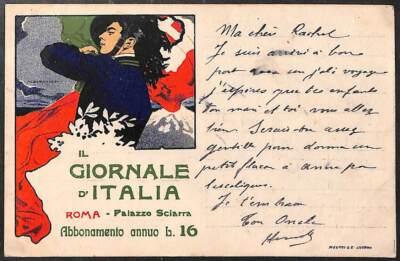 IL
GIORNALE
D'ITALIA
ROMA - Palazzo Sciarra
Abbonamento annuo L. 16
Ma chère Rachel
Je suis arrivé à bon
port avec un joli voyage
j'espère que les enfants
ton mari et toi vous allez
bien. Serais-tu assez
gentille pour donner un
petit flacon à
Je t'embrasse
Ton Oncle